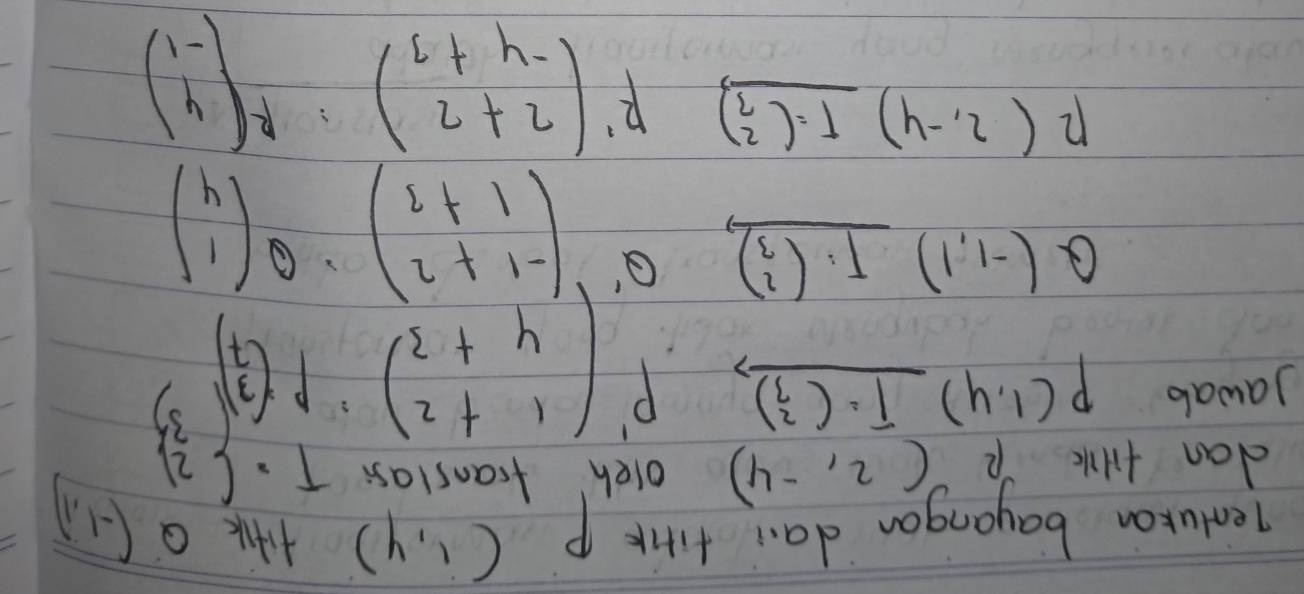 Tentukan bayangan dari titik P (1,4) titik Q (-1,1)
dan titik R (2, -4) oleh translasi T = (2 3)
Jawab P(1,4) T = (2 3) → P' (1 + 2 4 + 3) = P = (3 7)
Q (-1,1) T = (2 3) → Q' (-1 + 2 1 + 3) = Q (1 4)
R (2,-4) T = (2 3) → R' (2 + 2 -4 + 3) = R (4 -1)